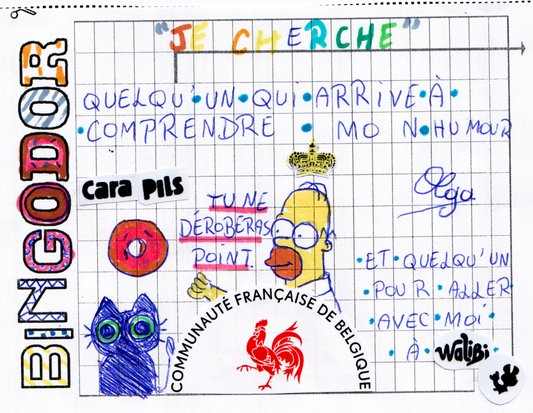 "JE CHERCHE"
QUELQU'UN•QUI•ARRIVE•À•
•COMPRENDRE • MO N•HUMOUR
BINGODOR
CARA PILS
TU NE
DÉROBERAS
POINT.
Olga
•ET•QUELQU'UN
•POUR•ALLER
•AVEC•MOI•
•À•WALiBi
COMMUNAUTÉ FRANÇAISE DE BELGIQUE